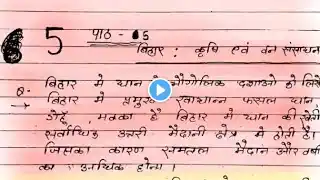 5 पाठ - 5
बिहार : कृषि एवं वन संसाधन
Q- बिहार में धान के भौगोलिक दशाओं को लिखें
बिहार में प्रमुख खाद्यान्न फसल धान
गेहूँ, मक्का है बिहार में धान की खेती
सर्वाधिक उत्तरी मैदानी क्षेत्र में होती है।
जिसका कारण समतल मैदान और वर्षा
का अधिक होना।